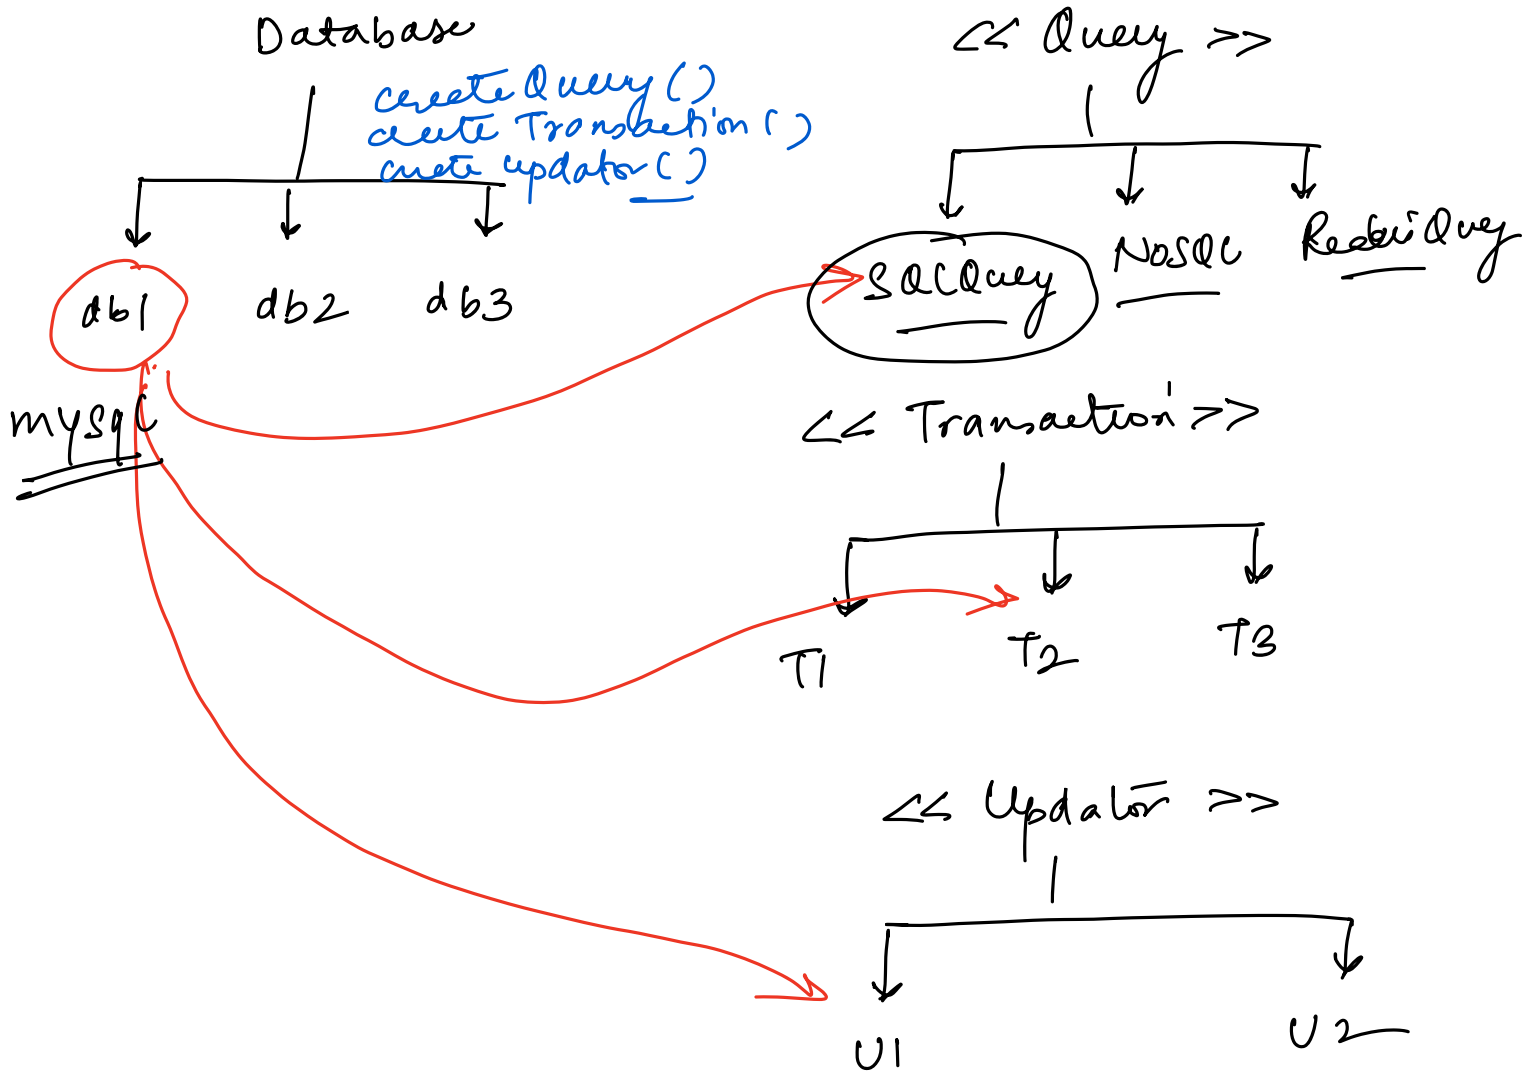 Database
createQuery()
create Transaction()
create updator()
db1
db2
db3
mysql
<< Query >>
SQLQuey
NoSQL
<< Transaction >>
T1
T2
T3
<< Updator >>
U1
U2